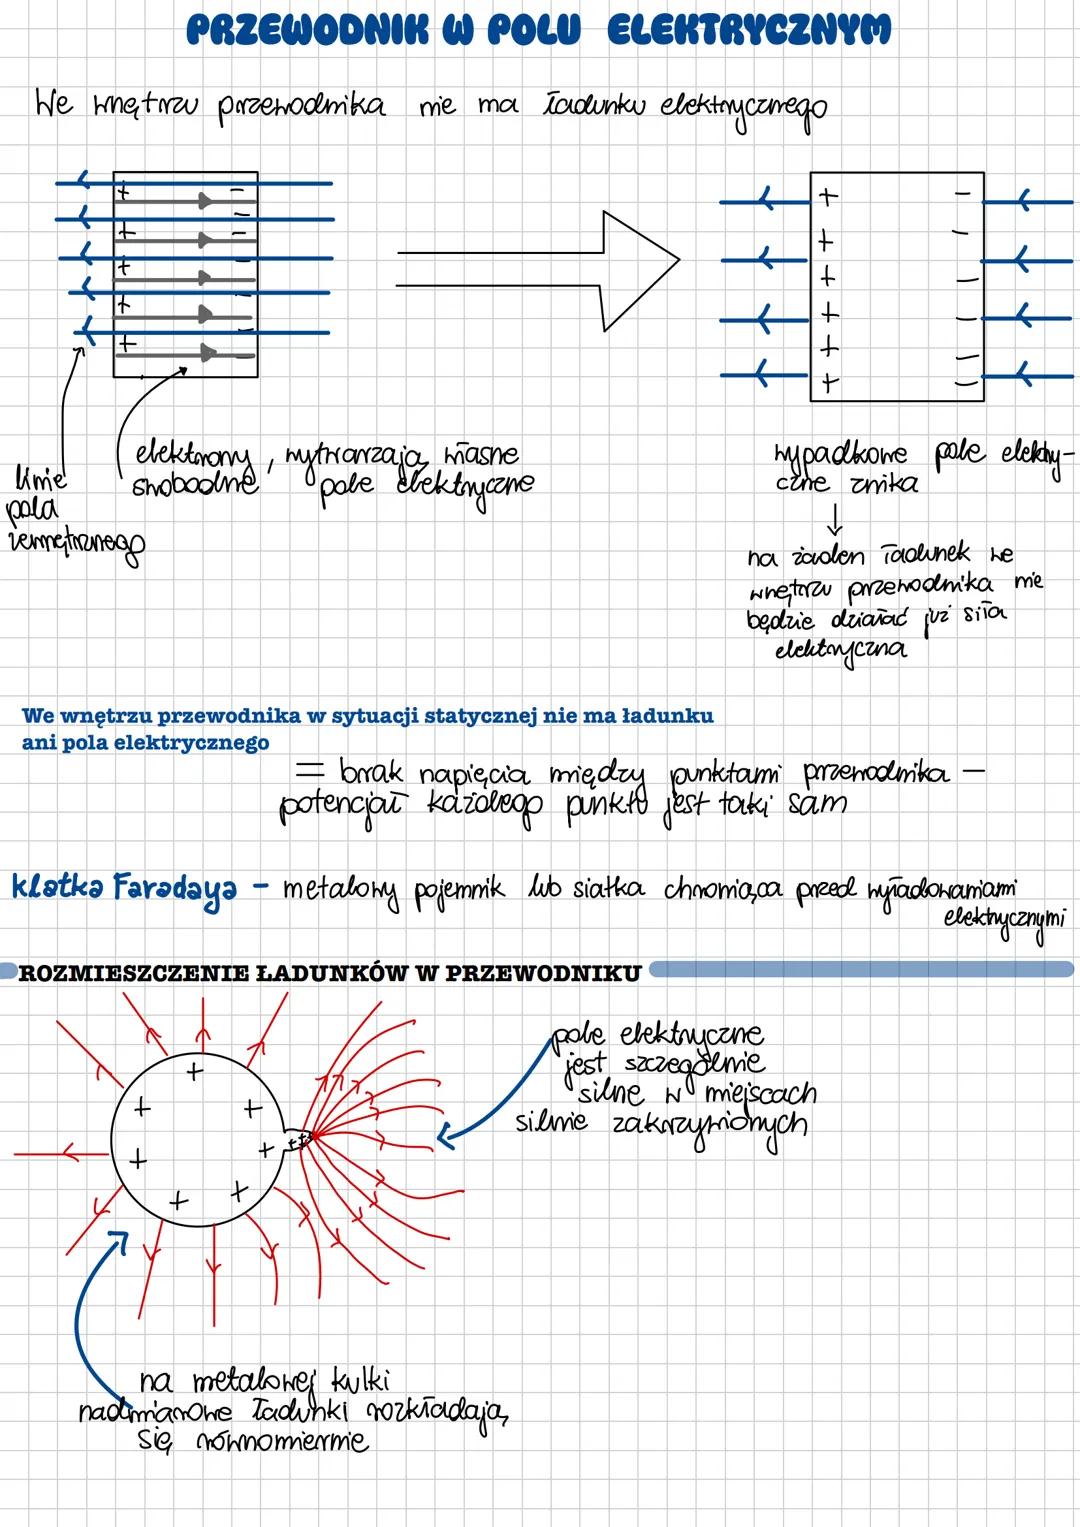 PRZEWODNIK W POLU ELEKTRYCZNYM
We wnętrzu przewodnika nie ma ładunku elektrycznego
linie
pola
zewnętrznego
elektrony, wytwarzają własne
swobodne pole elektryczne
wypadkowe pole elektry-
czne znika
↓
na żaden ładunek we
wnętrzu przewodnika nie
będzie działać już siła
elektryczna
We wnętrzu przewodnika w sytuacji statycznej nie ma ładunku
ani pola elektrycznego
= brak napięcia między punktami przewodnika -
potencjał każdego punktu jest taki sam
klatka Faradaya - metalowy pojemnik lub siatka chroniąca przed wyładowaniami
elektrycznymi
ROZMIESZCZENIE ŁADUNKÓW W PRZEWODNIKU
pole elektryczne
jest szczególnie
silne w miejscach
silnie zakrzywionych
na metalowej kulki
nadmiarowe ładunki rozkładają
się równomiernie